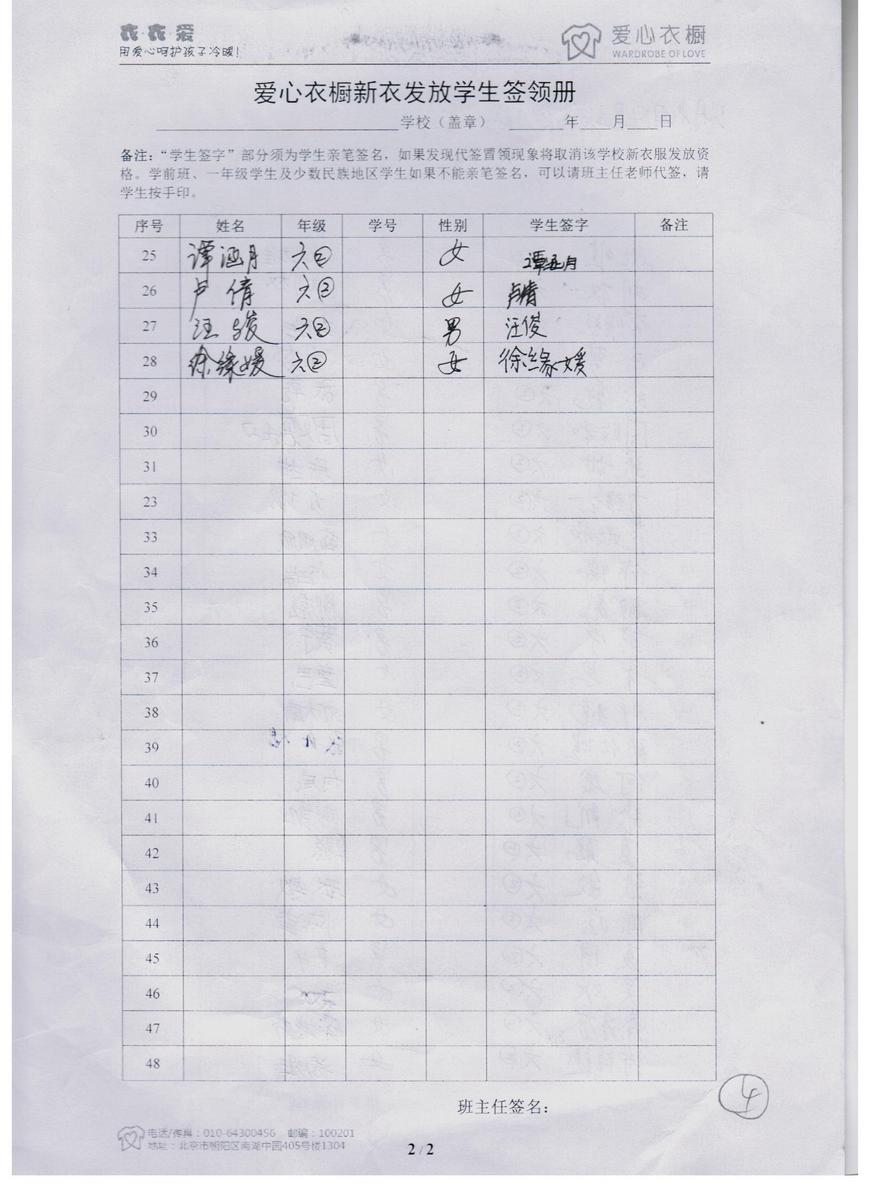 衣·衣爱
用爱心呵护孩子冷暖!
爱心衣橱
WARDROBE OF LOVE
爱心衣橱新衣发放学生签领册
学校（盖章） 年 月 日
备注：“学生签字”部分须为学生亲笔签名，如果发现代签冒领现象将取消该学校新衣服发放资
格。学前班、一年级学生及少数民族地区学生如果不能亲笔签名，可以请班主任老师代签，请
学生按手印。
序号 姓名 年级 学号 性别 学生签字 备注
25 谭涵月 六② 女 谭涵月
26 卢倩 六② 女 卢倩
27 汪骏 六② 男 汪俊
28 徐缘媛 六② 女 徐缘媛
29
30
31
23
33
34
35
36
37
38
39
40
41
42
43
44
45
46
47
48
班主任签名：
④
电话/传真：010-64300456 邮编：100201
地址：北京市朝阳区南湖中园405号楼1304
2 / 2